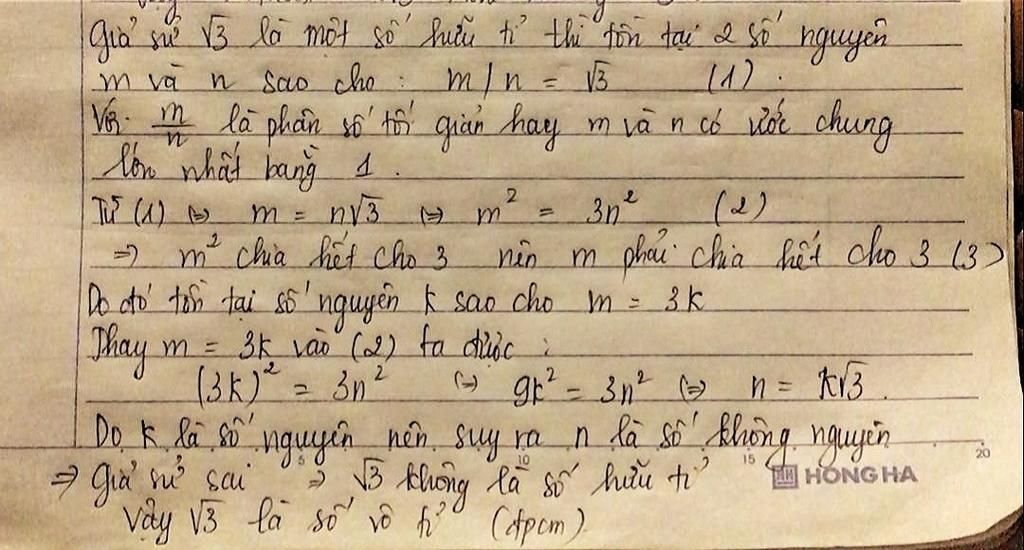 Giả sử √3 là một số hữu tỉ thì tồn tại 2 số nguyên
m và n sao cho : m/n = √3 (1) .
Với m/n là phân số tối giản hay m và n có ước chung
lớn nhất bằng 1 .
Từ (1) ⇔ m = n√3 ⇔ m² = 3n² (2)
⇒ m² chia hết cho 3 nên m phải chia hết cho 3 (3)
Do đó tồn tại số nguyên k sao cho m = 3k
Thay m = 3k vào (2) ta được :
(3k)² = 3n² ⇔ 9k² = 3n² ⇔ n = k√3 .
Do k là số nguyên nên suy ra n là số không nguyên
5 10 15 20
⇒ Giả sử sai ⇒ √3 không là số hữu tỉ
HONG HA
Vậy √3 là số vô tỉ (đpcm)